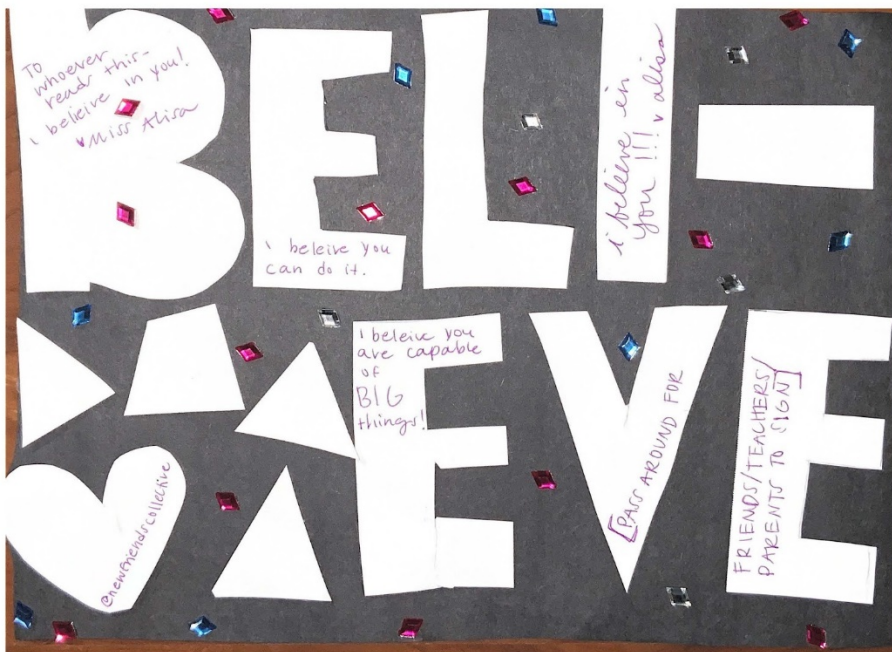 BELI-
To
whoever
reads this-
i beleive in you!
♥Miss Alisa
i beleive you
can do it.
i beleive in
you!!! ♥ alisa
EVE
i beleive you
are capable
of
BIG
things!
[PASS AROUND FOR
FRIENDS/TEACHERS/
PARENTS TO SIGN]
@newfriendscollective